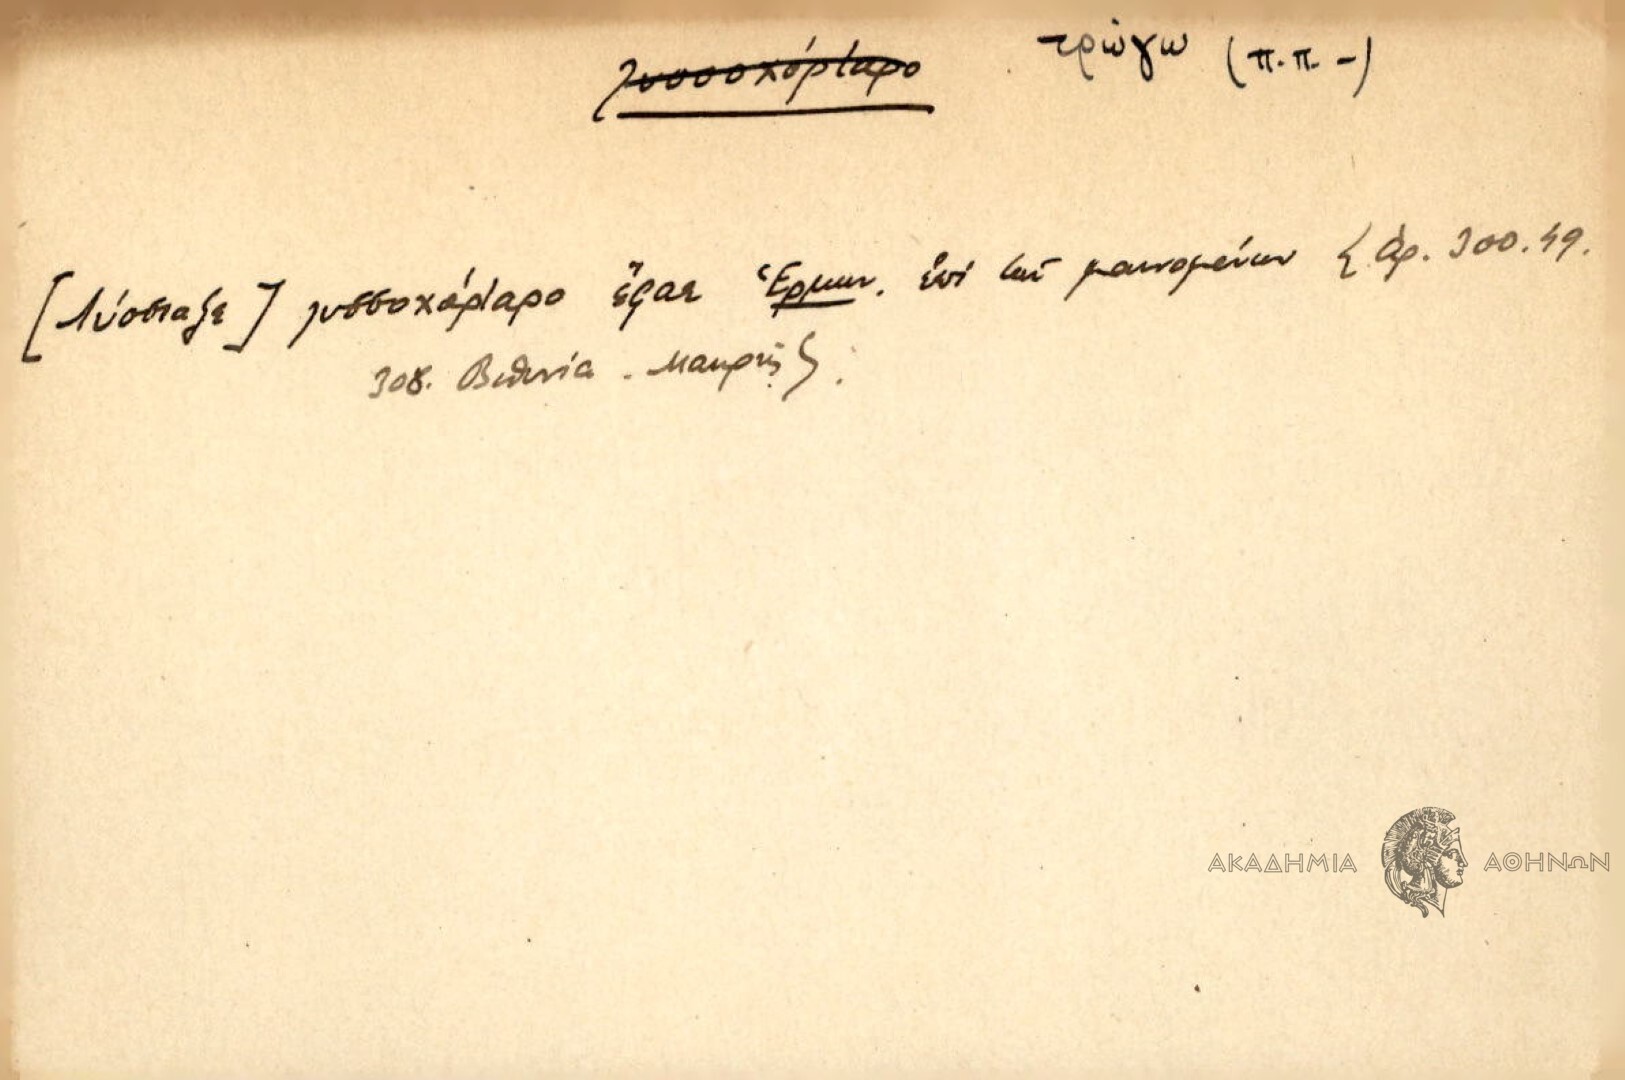 λυσσοχόρταρο τρώγω (π.π. -)
[Λύσσιαξε] λυσσοχόρταρο ἔφαε Ἑρμην. ἐπὶ τοῦ μαινομένων { Ἀρ. 300. 49.
308. Βιθυνία - Μακρῆς }.
ΑΚΑΔΗΜΙΑ ΑΘΗΝΩΝ